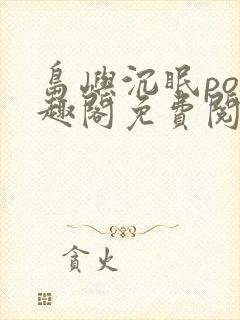 島嶼沉眠po
趣閣免費閱
貪火